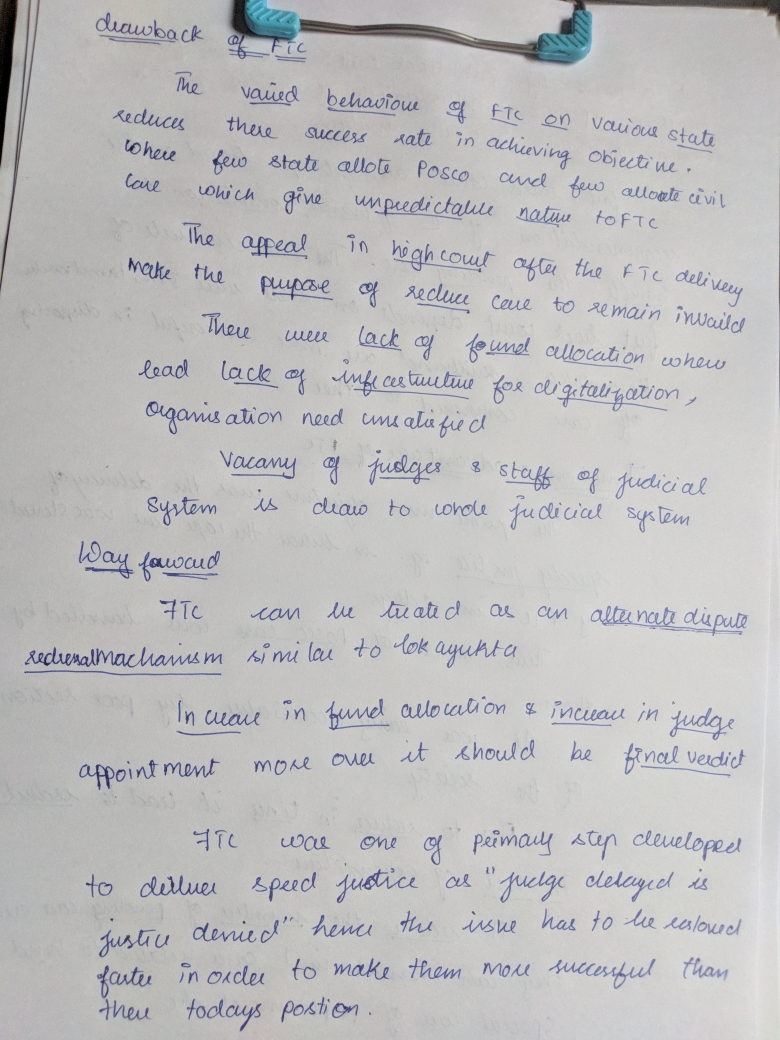 drawback of FTC
The varied behaviour of FTC on various state
reduces there success rate in achieving objective.
where few state allote POSCO and few allocate civil
case which give unpredictable nature to FTC
The appeal in highcourt after the FTC delivery
make the purpose of reduce case to remain invaild
There were lack of found allocation where
lead lack of infrastructure for digitalization,
organisation need unsatisfied
Vacancy of judges & staff of judicial
system is draw to whole judicial system
Way forward
FTC can be treated as an alternate dispute
redresalmachanism similar to lokayukta
Increase in fund allocation & increase in judge
appointment more over it should be final verdict
FTC was one of primary step developed
to deliver speed justice as "judge delayed is
justice denied" hence the issue has to be resloved
faster in order to make them more successful than
there todays postion.